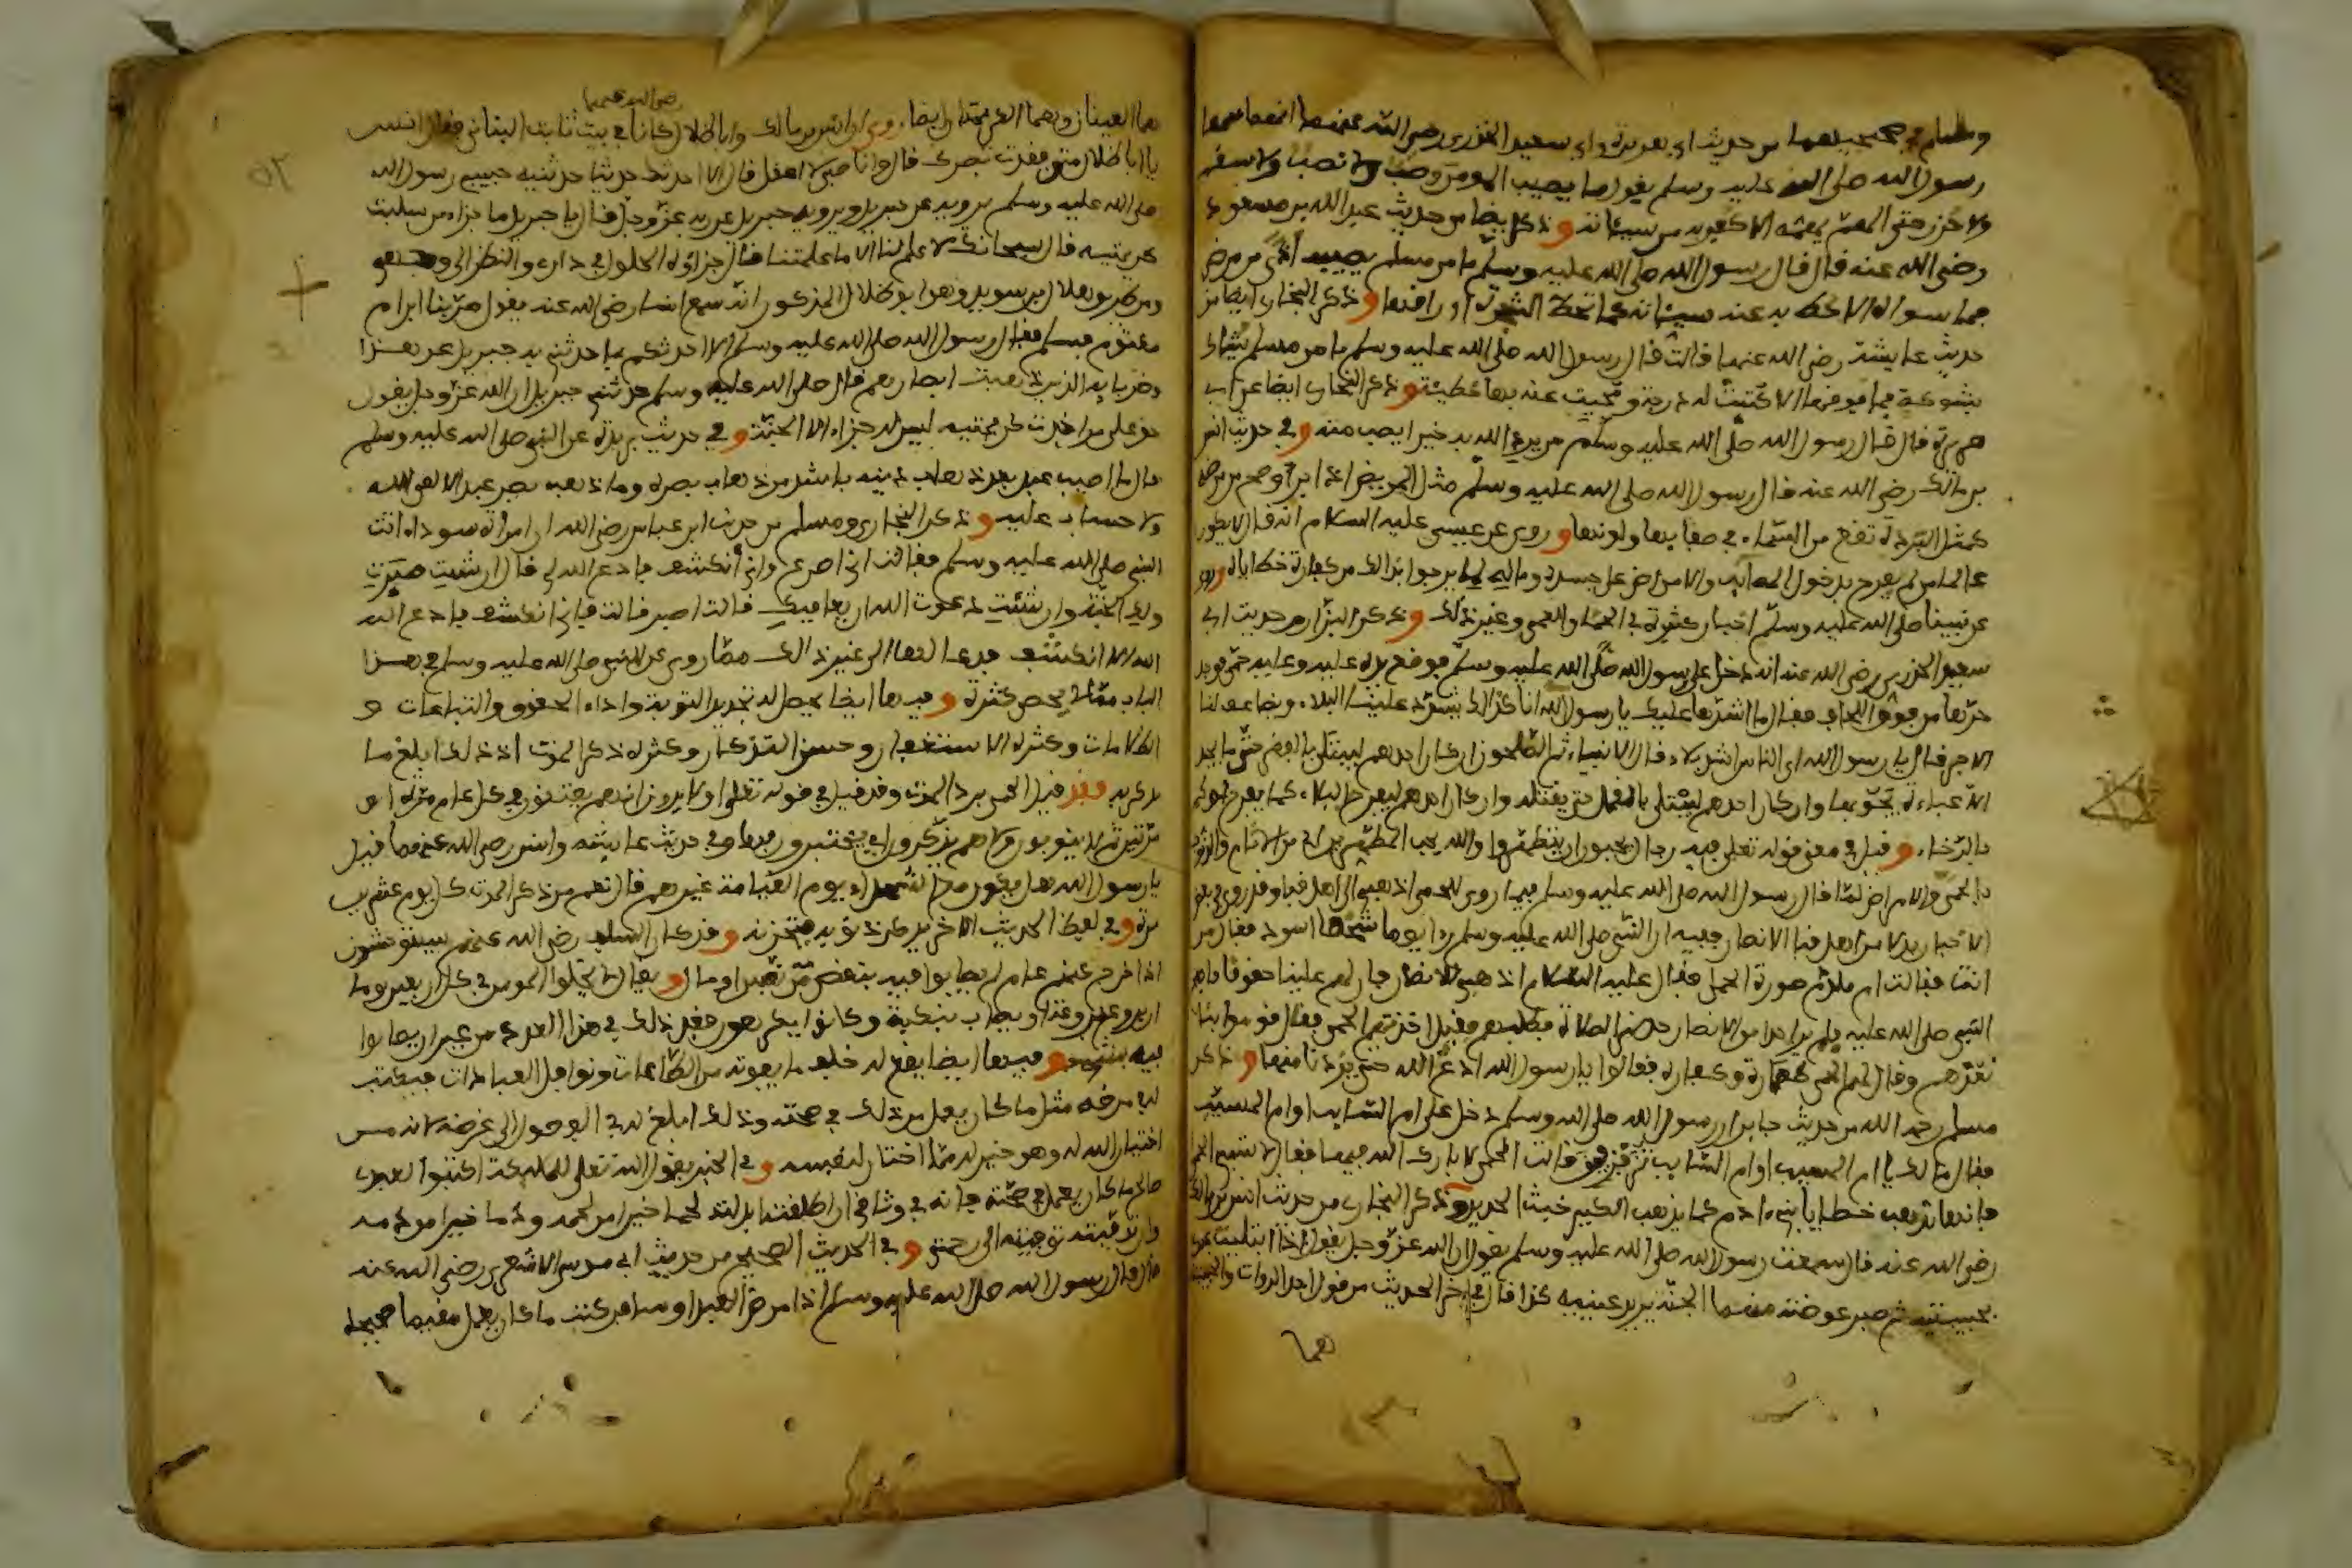 ومسلم في صحيحيهما من حديث ابي هريرة وابي سعيد الخدري رضي الله عنهما انهما سمعا
رسول الله صلى الله عليه وسلم يقول ما يصيب المومن وصب ولا نصب ولا سقم
ولا حزن حتى الهم يهمه الا كفر به من سيئاته وذكر ايضا من حديث عبد الله بن مسعود
رضي الله عنه قال قال رسول الله صلى الله عليه وسلم ما من مسلم يصيبه اذى من مرض
فما سواه الا حط به عنه سيئاته كما تحط الشجرة اوراقها وذكر البخاري ايضا من
حديث عايشة رضي الله عنها قالت قال رسول الله صلى الله عليه وسلم ما من مسلم يشاك
بشوكة فما فوقها الا كتبت له درجة ومحيت عنه بها خطيئة وذكر البخاري ايضا عن ابي
هريرة قال قال رسول الله صلى الله عليه وسلم من يرد الله به خيرا يصب منه وفي حديث انس
بن مالك رضي الله عنه قال رسول الله صلى الله عليه وسلم مثل المريض اذا برا وصح من مرضه
كمثل البردة تقع من السماء في صفايها ولونها وروي عن عيسى عليه السلام انه قال لا يكون
عالما من لم يفرح بدخول المصايب والامراض على جسده وماله لما يرجوا بذلك من كفارة خطاياه وروي
عن نبينا صلى الله عليه وسلم اخبار كثيرة في الحما والعمى وغير ذلك وذكر البزار من حديث ابي
سعيد الخدري رضي الله عنه انه دخل على رسول الله صلى الله عليه وسلم فوضع يده عليه وعليه حمى فوجد
حرها من فوق اللحاف فقال ما اشدها عليك يا رسول الله انا كذلك يشدد علينا البلاء ويضاعف لنا
الاجر فقال يا رسول الله اي الناس اشد بلاء قال الانبياء ثم الصالحون ان كان احدهم ليبتلى بالفقر حتى ما يجد
الا عباءة يحويها وان كان احدهم ليبتلى بالقمل حتى يقتله وان كان احدهم ليفرح بالبلاء كما يفرح احدكم
بالرخاء وقيل في معنى قوله تعلى فيه رجال يحبون ان يتطهروا والله يحب المطهرين اي من الاثام والذنوب
بالحمى والامراض لما قال رسول الله صلى الله عليه وسلم فيما روي للحمى اذهبي الى اهل قبا وقد روي في بعض
الاخبار بدلا من اهل قبا الانصار ففيه ان النبي صلى الله عليه وسلم راى يوما شخصا اسود فقال من
انت فقالت ام ملدم صورة الحمى فقال عليه السلام اذهبي للانصار فان لهم علينا حقوقا
النبي صلى الله عليه فلم ير احدا من الانصار حضر الصلاة فطلبهم فقيل اخذتهم الحمى فقال قوموا بنا
نعودهم وقال لهم الحمى طهارة وكفارة فقالوا يا رسول الله ادع الله حتى يزدنا منها وذكر
مسلم رحمه الله من حديث جابر ان رسول الله صلى الله وسلم دخل على ام السايب او ام المسيب
فقال مالك يا ام المسيب او ام السايب تزفزفين قالت الحمى لا بارك الله فيها فقال لا تسبي الحمى
فانها تذهب خطايا بني ادم كما يذهب الكير خبث الحديد وذكر البخاري من حديث انس بن مالك
رضي الله عنه قال سمعت رسول الله صلى الله عليه وسلم يقول ان الله عز وجل يقول اذا ابتليت عبدي
بحبيبتيه ثم صبر عوضته منهما الجنة يريد عينيه كذا قال في اخر الحديث من قول احد الروات والحبيبتان
هما
رضي الله عنهما
هما العينان وهما الكريمتان ايضا روي ان انس بن مالك وابا ظلال كانا في بيت ثابت البناني فقال انس
يا ابا ظلال متى فقدت بصرك قال وانا صبي لا اعقل قال الا احدثك حديثا حدثنيه حبيبي رسول الله
صلى الله عليه وسلم يرويه عن جبريل ويرويه جبريل عن ربه عز وجل قال يا جبريل ما جزاء من سلبت
كريمتيه قال سبحانك لا علم لنا الا ما علمتنا قال جزاؤه الحلول في داري والنظر الى وجهي
ومن طريق هلال بن سويد وهو ابو ظلال المذكور انه سمع انسا رضي الله عنه يقول مر بنا ابن ام
مكتوم فسلم فقال رسول الله صلى الله عليه وسلم الا احدثكم بما حدثني به جبريل عن هذا
وضربايه الذين ذهبت ابصارهم قال صلى الله عليه وسلم حدثني جبريل ان الله عز وجل يقول
حق على من اخذت كريمتيه ليس له جزاء الا الجنة وفي حديث بريدة عن النبي صلى الله عليه وسلم
قال ما اصيب عبد بعد ذهاب دينه باشد من ذهاب بصره وما ذهب بصر عبد الا لقي الله
ولا حساب عليه وذكر البخاري ومسلم من حديث ابن عباس رضي الله ان امراة سوداء اتت
النبي صلى الله عليه وسلم فقالت اني اصرع واني انكشف فادع الله لي قال ان شيت صبرت
ولك الجنة وان شئت دعوت الله ان يعافيك قالت اصبر قالت فاني انكشف فادع الله
الله الا انكشف فدعا لها الى غير ذلك مما روي عن النبي صلى الله عليه وسلم في هذا
الباب مما لا يحصى كثرة وفيها ايضا يحصل له تجديد التوبة واداء الحقوق والتباعات و
الظلامات وكثرة الاستغفار وحسن التذكار وكثرة ذكر الموت اذ ذلك ابلغ ما
يذكر به فقد قيل الحمى بريد الموت وقد قيل في قوله تعلى اولا يرون انهم يفتنون في كل عام مرة او
مرتين ثم لا يتوبون ولا هم يذكرون اي يختبرون بها وفي حديث عايشة وانس رضي الله عنهما قيل
يا رسول الله هل يكون مع الشهداء يوم القيامة غيرهم قال نعم من ذكر الموت كل يوم عشرين
مرة وفي لفظ الحديث الاخر يذكر ذنوبه فتحزنه وقد كان السلف رضي الله عنهم يستوحشون
اذا خرج عنهم عام لم يصابوا فيه بنقص من نفس او مال ويقال لا يخلوا المومن في كل اربعين يوما
ان يروع بروعة او يصاب بنكبة وكانوا يكرهون فقد ذلك في هذا العدد من غير ان يصابوا
فيه بشيء وفيها ايضا يقع له خلف ما يفوته من الطاعات ونوافل العبادات فيكتب
له في مرضه مثل ما كان يعمل من ذلك في صحته وذلك ابلغ له في الوصول الى غرضه لانه من
اختيار الله له وهو خير له مما اختار لنفسه وفي الخبر يقول الله تعلى للملايكة اكتبوا لعبدي
صالح ما كان يعمل في صحته فانه في وثاقي ان اطلقته ابدلته لحما خيرا من لحمه ودما خيرا من دمه
وان توفيته توفيته الى رحمتي وفي الحديث الصحيح من حديث ابي موسى الاشعري رضي الله عنه
قال قال رسول الله صلى الله عليه وسلم اذا مرض العبد او سافر كتب له ما كان يعمل مقيما صحيحا